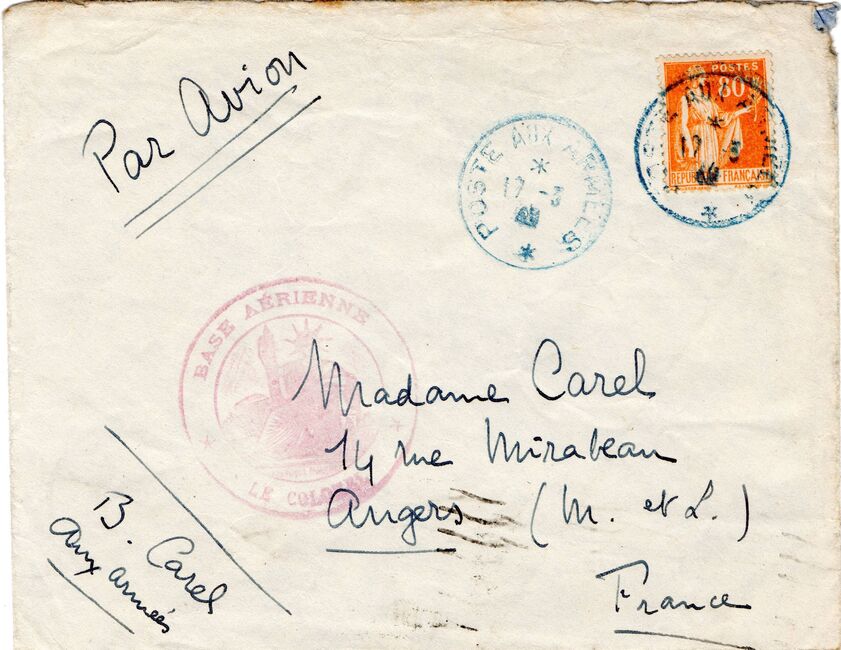 Par Avion
POSTES
80
REPUBLIQUE FRANÇAISE
POSTE AUX ARMEES
17 -3
POSTE AUX ARMEES
17 -3
BASE AÉRIENNE
LE COLONEL
Madame Carel
14 rue Mirabeau
Angers (M. et L.)
France
B. Carel
aux armées